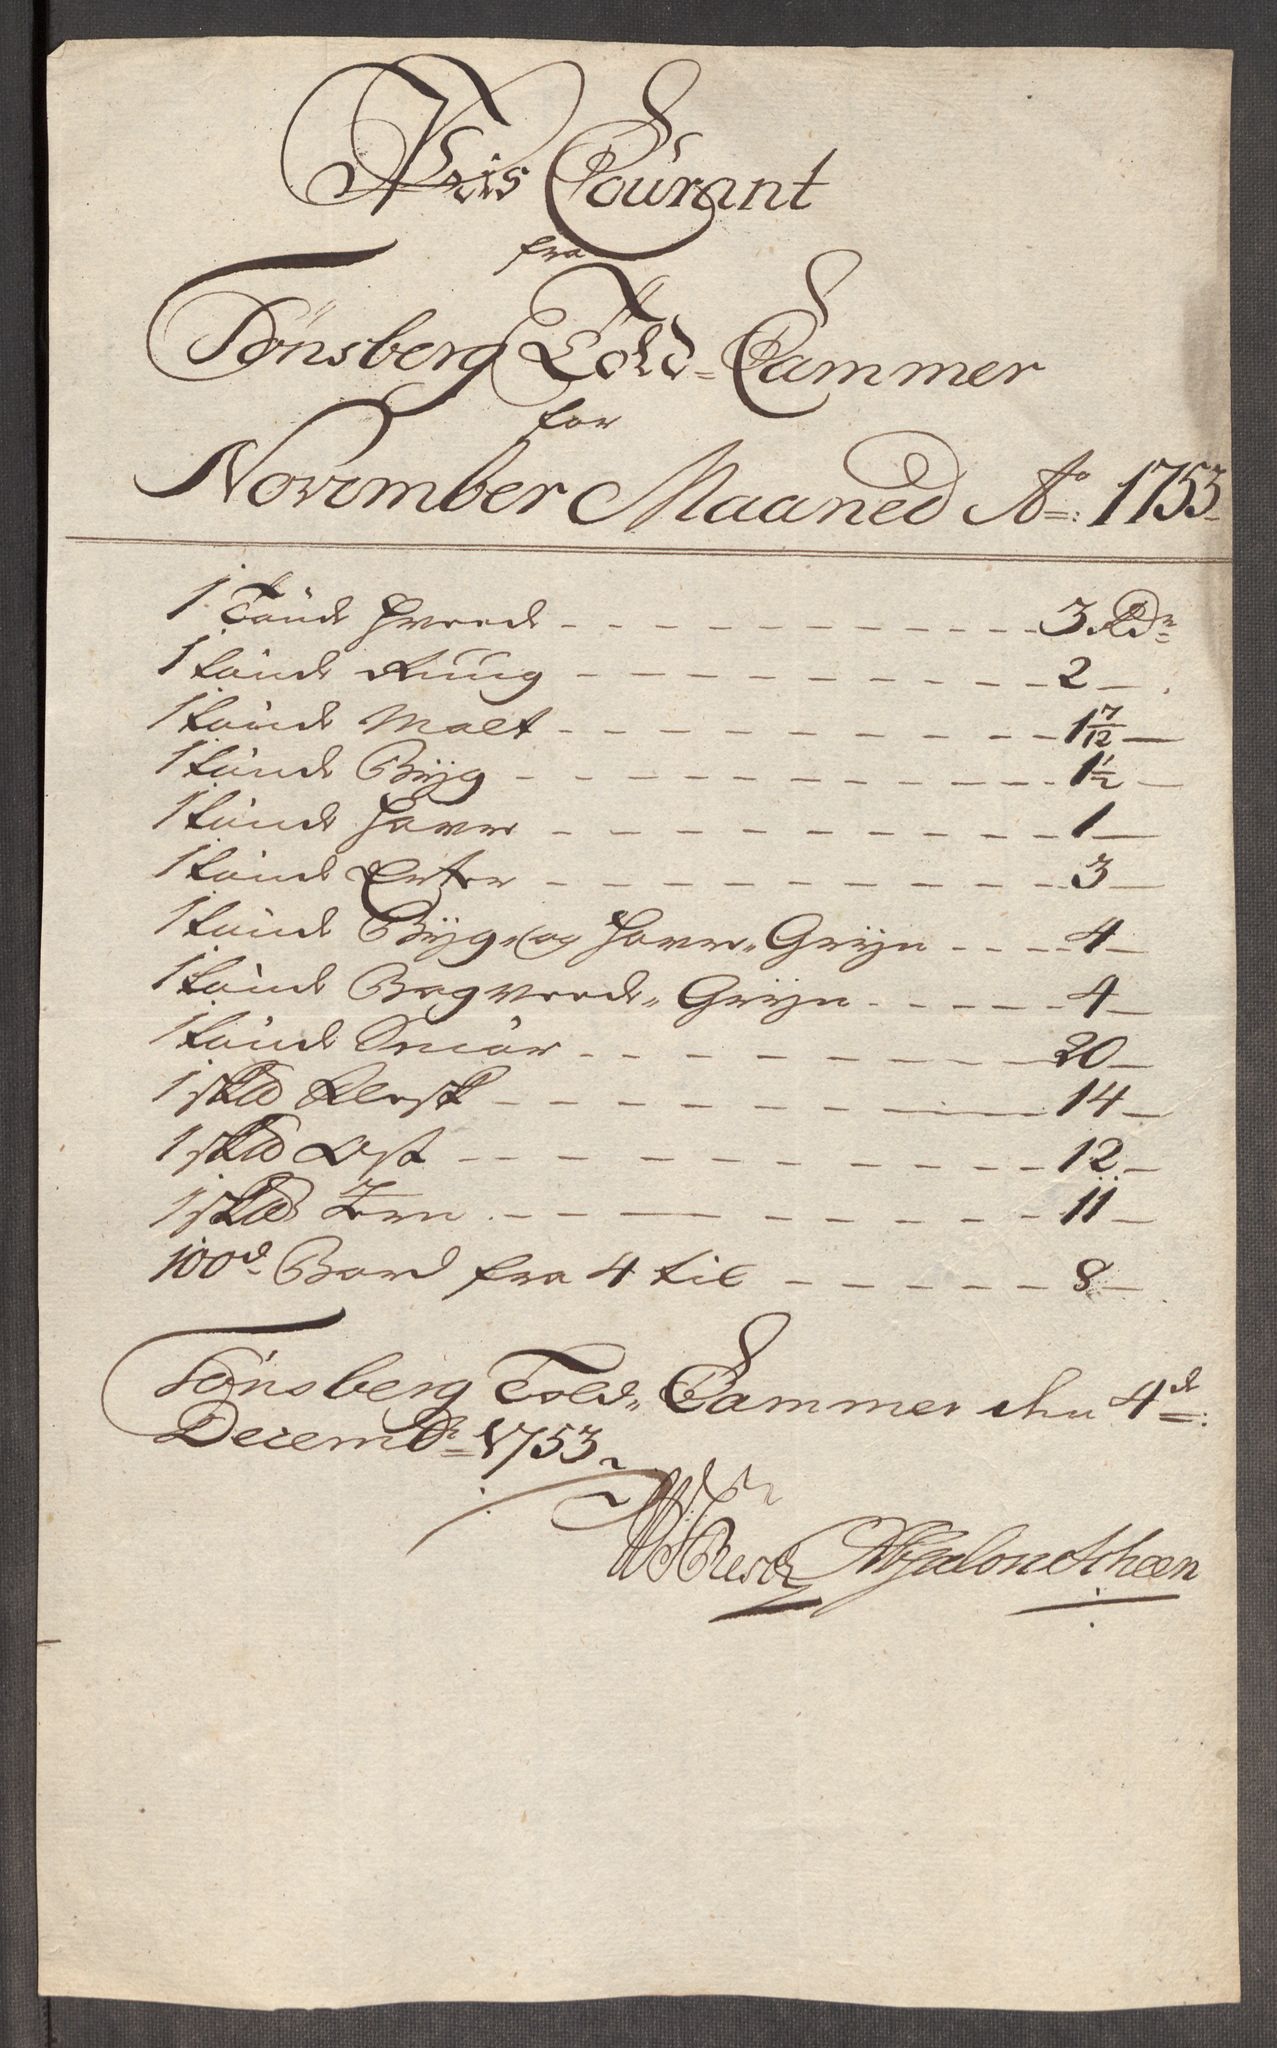 Pris Courant
fra
Tønsberg Told-Cammer
for
November Maaned Ao: 1753
1 Tønde Hvede - - - 3 Rdr
1 tønde Rüüg - - - 2 -
1 tønde Malt - - - 1 7/12 -
1 tønde Bÿg - - - 1 1/2 -
1 tønde Havre - - - 1 -
1 tønde Erter - - - 3 -
1 tønde Bÿg- og Havre-Grÿn - - - 4 -
1 tønde Bogveede-Grÿn - - - 4 -
1 tønde Smiør - - - 20 -
1 skld Flesk - - - 14 -
1 skld Ost - - - 12 -
1 skld Jern - - - 11 -
100d Bord fra 4 til - - - 8 -
Tønsberg Told-Cammer den 4de:
Decembr 1753